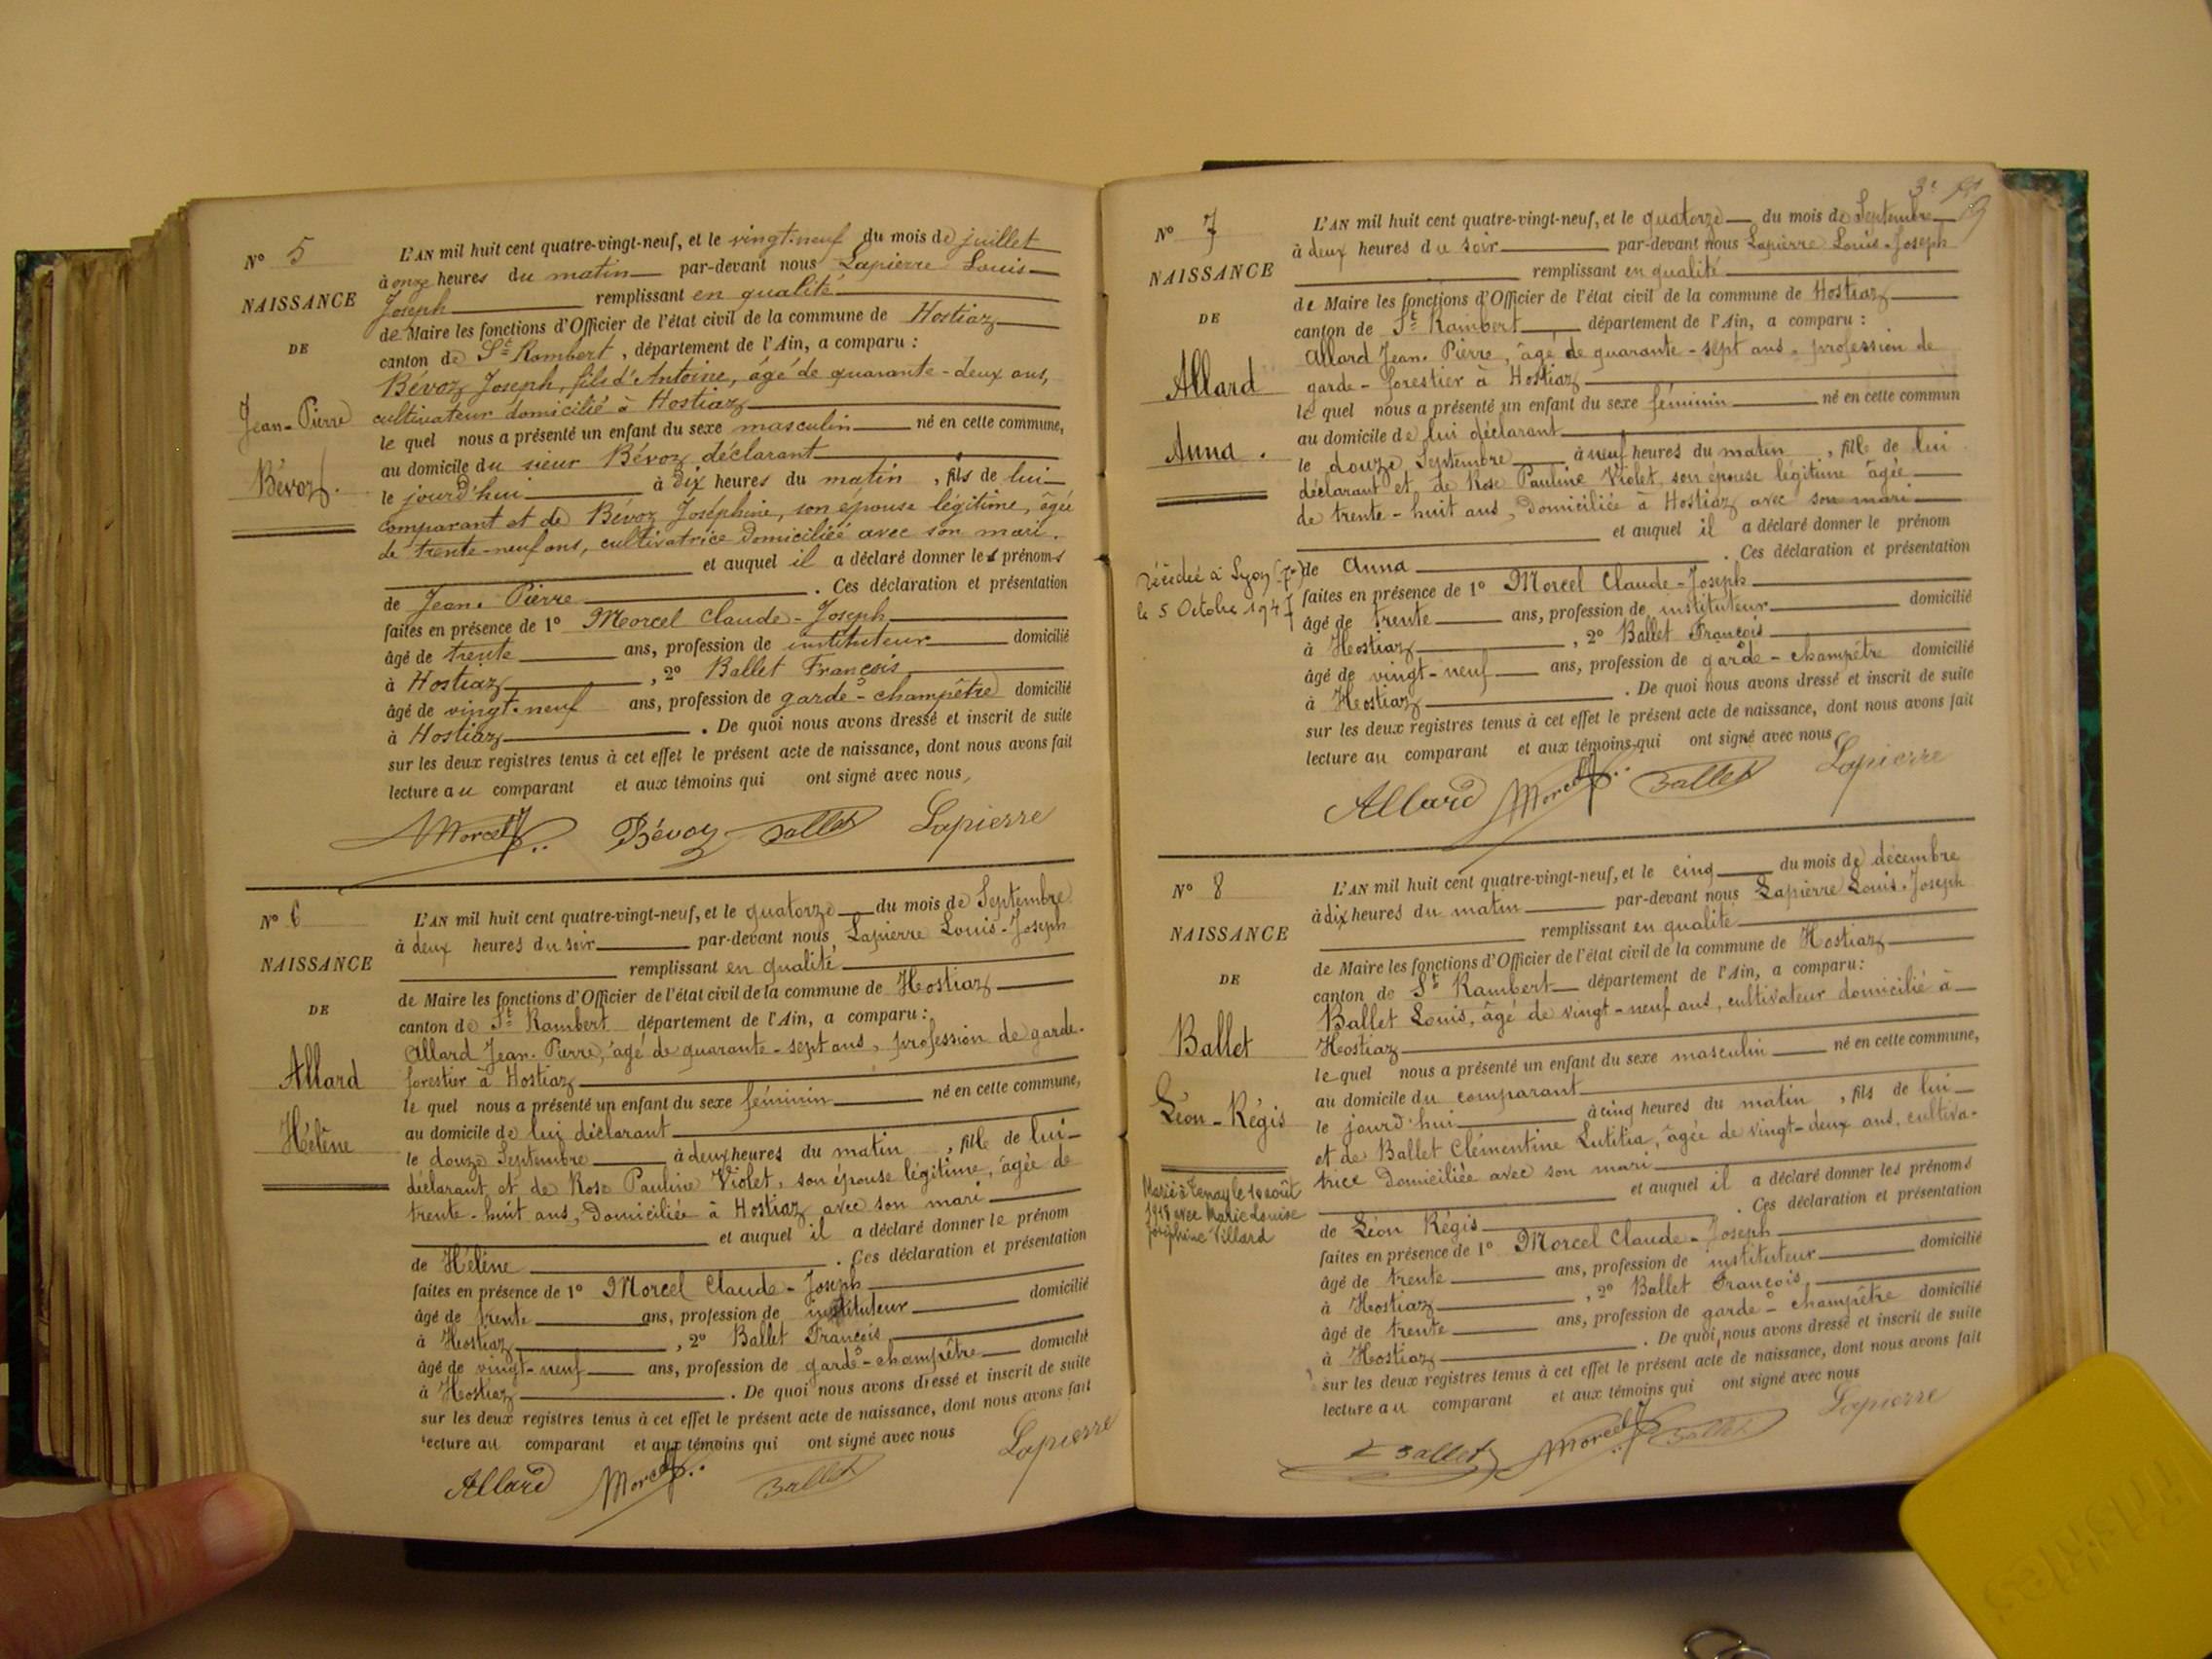 N° 5
NAISSANCE
DE
Jean-Pierre
Bévoz.
L'AN mil huit cent quatre-vingt-neuf, et le vingt-neuf du mois de juillet
à onze heures du matin par-devant nous Lapierre Louis
Joseph remplissant en qualité
de Maire les fonctions d'Officier de l'état civil de la commune de Hostiaz
canton de St Rambert, département de l'Ain, a comparu :
Bévoz Joseph, fils d'Antoine, âgé de quarante-deux ans,
cultivateur domicilié à Hostiaz
le quel nous a présenté un enfant du sexe masculin né en cette commune,
au domicile du sieur Bévoz déclarant
le jourd'hui à dix heures du matin, fils de lui
comparant et de Bévoz Joséphine, son épouse légitime, âgée
de trente-neuf ans, cultivatrice domiciliée avec son mari.
et auquel il a déclaré donner les prénoms
de Jean-Pierre. Ces déclaration et présentation
faites en présence de 1° Morcel Claude-Joseph
âgé de trente ans, profession de instituteur domicilié
à Hostiaz, 2° Ballet François
âgé de vingt-neuf ans, profession de garde-champêtre domicilié
à Hostiaz. De quoi nous avons dressé et inscrit de suite
sur les deux registres tenus à cet effet le présent acte de naissance, dont nous avons fait
lecture au comparant et aux témoins qui ont signé avec nous,
Morcel Bévoz Ballet Lapierre
N° 6
NAISSANCE
DE
Allard
Hélène
L'AN mil huit cent quatre-vingt-neuf, et le quatorze du mois de Septembre
à deux heures du soir par-devant nous, Lapierre Louis-Joseph
remplissant en qualité
de Maire les fonctions d'Officier de l'état civil de la commune de Hostiaz
canton de St Rambert département de l'Ain, a comparu :
Allard Jean-Pierre, âgé de quarante-sept ans, profession de garde-
forestier à Hostiaz
le quel nous a présenté un enfant du sexe féminin né en cette commune,
au domicile de lui déclarant
le douze Septembre à deux heures du matin, fille de lui
déclarant et de Rose Pauline Violet, son épouse légitime, âgée de
trente-huit ans, domiciliée à Hostiaz avec son mari
et auquel il a déclaré donner le prénom
de Hélène. Ces déclaration et présentation
faites en présence de 1° Morcel Claude-Joseph
âgé de trente ans, profession de instituteur domicilié
à Hostiaz, 2° Ballet François
âgé de vingt-neuf ans, profession de garde-champêtre domicilié
à Hostiaz. De quoi nous avons dressé et inscrit de suite
sur les deux registres tenus à cet effet le présent acte de naissance, dont nous avons fait
lecture au comparant et aux témoins qui ont signé avec nous
Allard Morcel Ballet Lapierre
N° 7
NAISSANCE
DE
Allard
Anna.
Décédée à Lyon (7e)
le 5 Octobre 1947
L'AN mil huit cent quatre-vingt-neuf, et le quatorze du mois de Septembre
à deux heures du soir par-devant nous Lapierre Louis-Joseph
remplissant en qualité
de Maire les fonctions d'Officier de l'état civil de la commune de Hostiaz
canton de St Rambert département de l'Ain, a comparu :
Allard Jean-Pierre, âgé de quarante-sept ans, profession de
garde-forestier à Hostiaz
le quel nous a présenté un enfant du sexe féminin né en cette commun
au domicile de lui déclarant
le douze Septembre à neuf heures du matin, fille de lui
déclarant et de Rose Pauline Violet, son épouse légitime âgée
de trente-huit ans, domiciliée à Hostiaz avec son mari
et auquel il a déclaré donner le prénom
de Anna. Ces déclaration et présentation
faites en présence de 1° Morcel Claude-Joseph
âgé de trente ans, profession de instituteur domicilié
à Hostiaz, 2° Ballet François
âgé de vingt-neuf ans, profession de garde-champêtre domicilié
à Hostiaz. De quoi nous avons dressé et inscrit de suite
sur les deux registres tenus à cet effet le présent acte de naissance, dont nous avons fait
lecture au comparant et aux témoins qui ont signé avec nous
Allard Morcel Ballet Lapierre
N° 8
NAISSANCE
DE
Ballet
Léon-Régis
Marié à Tenay le 10 août
1918 avec Marie Louise
Joséphine Villard
L'AN mil huit cent quatre-vingt-neuf, et le cinq du mois de décembre
à dix heures du matin par-devant nous Lapierre Louis-Joseph
remplissant en qualité
de Maire les fonctions d'Officier de l'état civil de la commune de Hostiaz
canton de St Rambert département de l'Ain, a comparu :
Ballet Louis, âgé de vingt-neuf ans, cultivateur domicilié à
Hostiaz
le quel nous a présenté un enfant du sexe masculin né en cette commune,
au domicile du comparant
le jourd'hui à cinq heures du matin, fils de lui
et de Ballet Clémentine Lutitia, âgée de vingt-deux ans, cultiva-
trice domiciliée avec son mari
et auquel il a déclaré donner les prénoms
de Léon Régis. Ces déclaration et présentation
faites en présence de 1° Morcel Claude-Joseph
âgé de trente ans, profession de instituteur domicilié
à Hostiaz, 2° Ballet François
âgé de trente ans, profession de garde-champêtre domicilié
à Hostiaz. De quoi nous avons dressé et inscrit de suite
sur les deux registres tenus à cet effet le présent acte de naissance, dont nous avons fait
lecture au comparant et aux témoins qui ont signé avec nous
L Ballet Morcel Ballet Lapierre